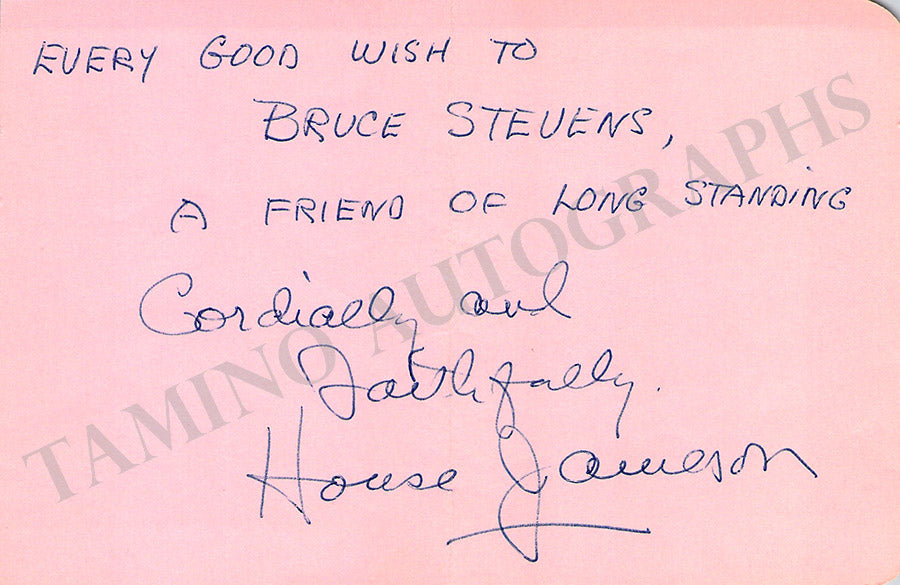 EVERY GOOD WISH TO
BRUCE STEVENS,
A FRIEND OF LONG STANDING
Cordially and
Faithfully.
House Jameson
TAMINO AUTOGRAPHS